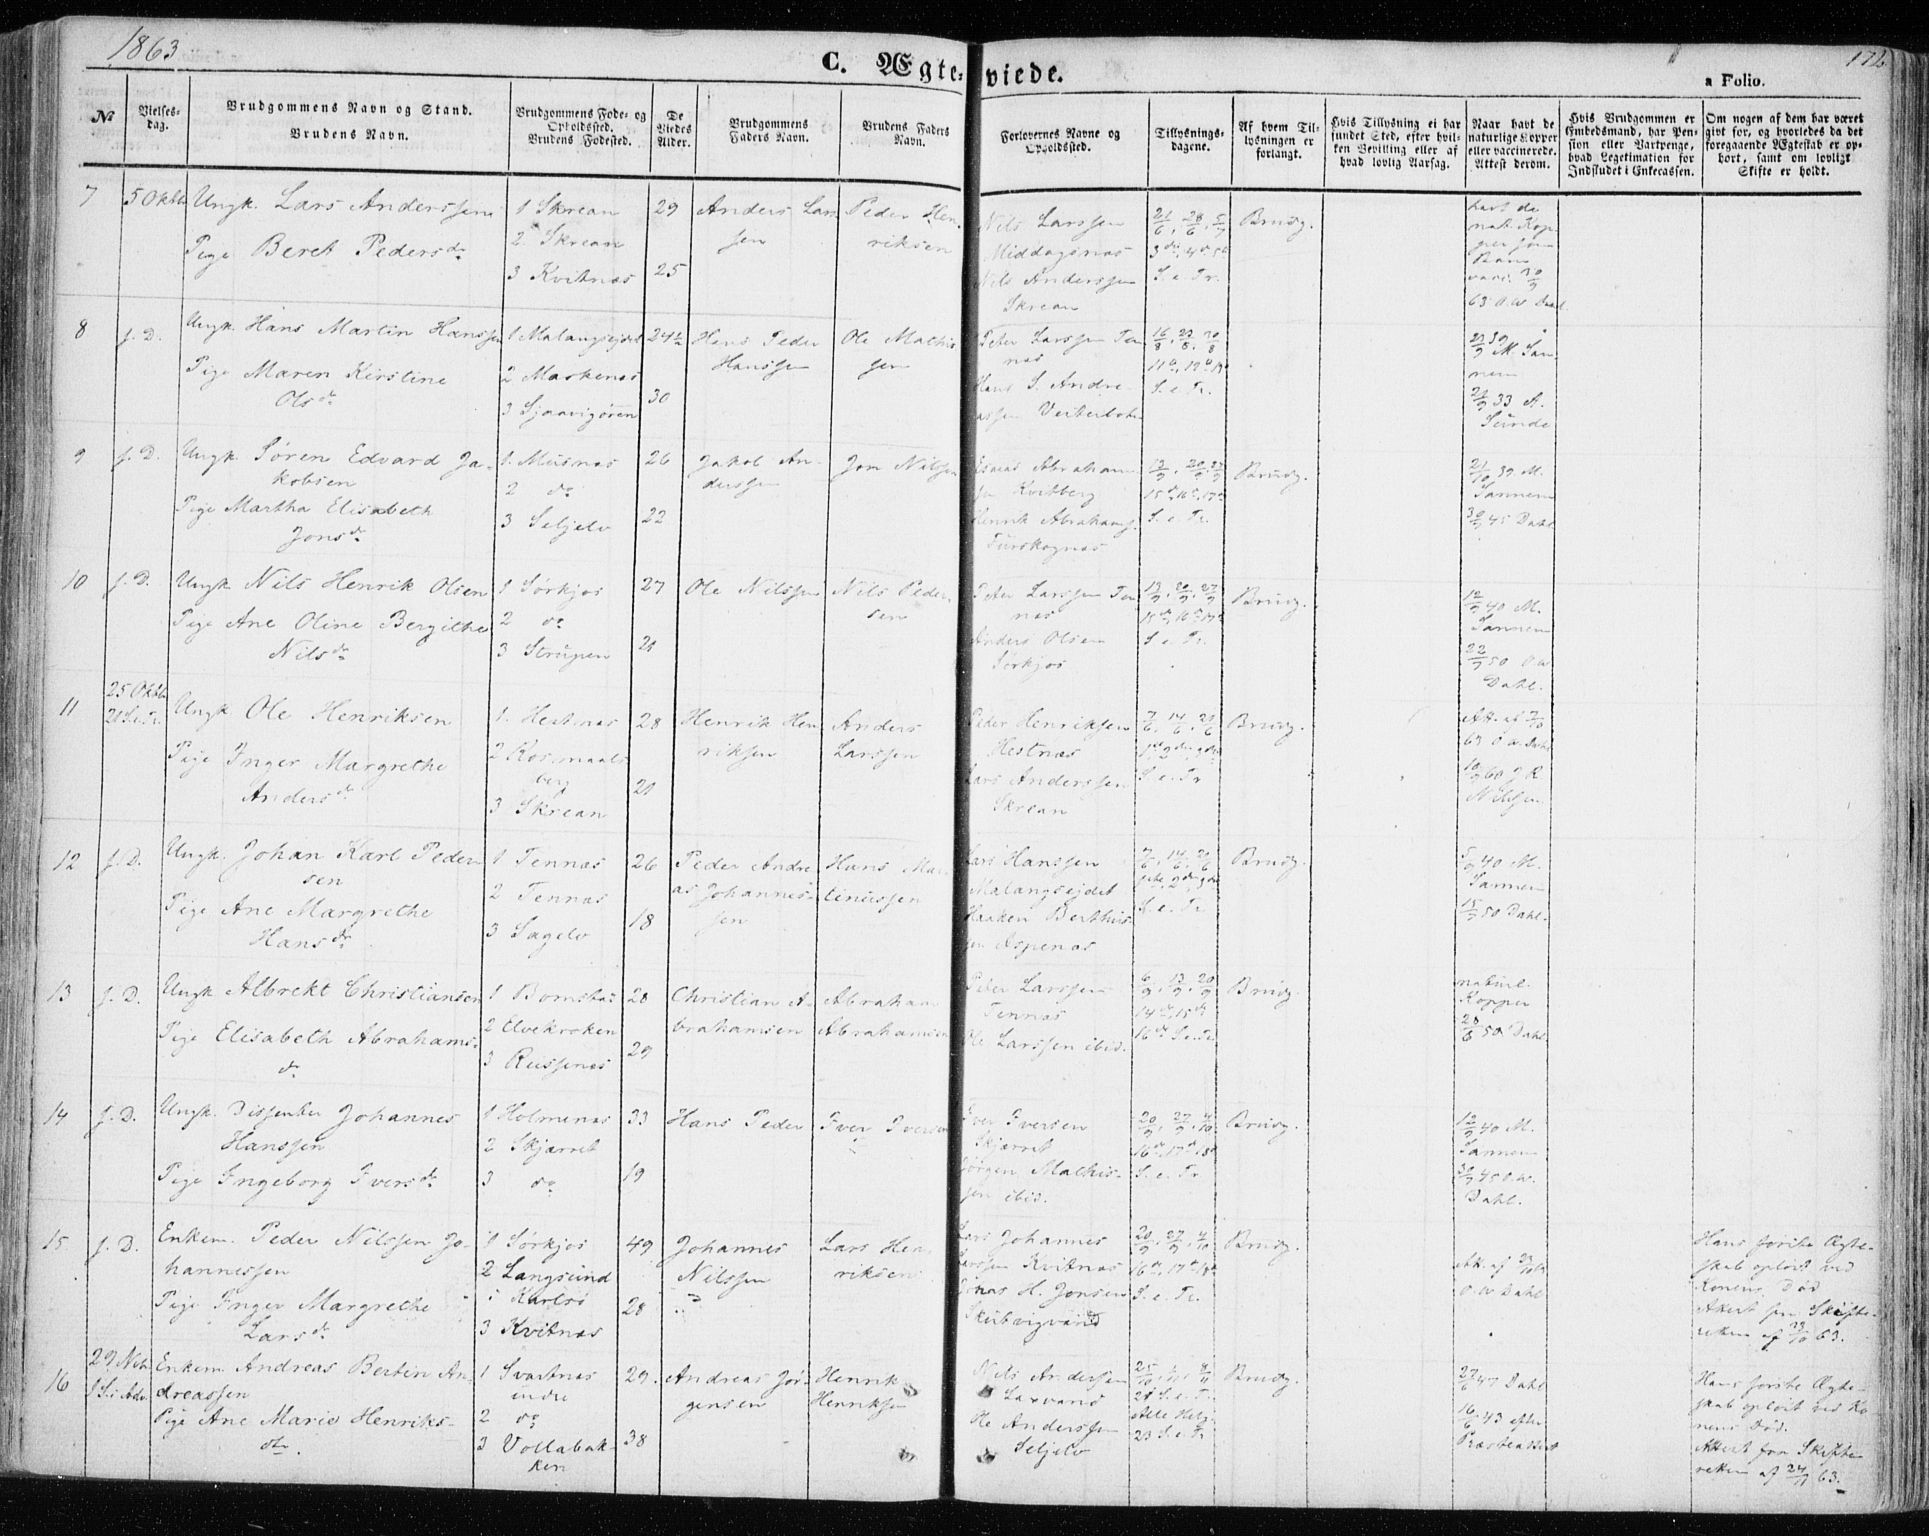 1863
172
C. Ægte-viede.
a Folio.
№
Vielses-dag.
Brudgommens Navn og Stand.
Brudens Navn.
Brudgommens Føde- og Opholdssted.
Brudens Fødested.
De Viedes Alder.
Brudgommens Faders Navn.
Brudens Faders Navn.
Forlovernes Navne og Opholdssted.
Tillysnings-dagene.
Af hvem Tillysningen er forlangt.
Hvis Tillysning ei har fundet Sted, efter hvilken Bevilling eller af hvad lovlig Aarsag.
Naar havt de naturlige Kopper eller vaccinerede. Attest derom.
Hvis Brudgommen er Embedsmand, har Pension eller Vartpenge, hvad Legetimation for Indskudet i Enkecassen.
Om nogen af dem har været givt før, og hvorledes da det foregaaende Ægteskab er ophørt, samt om lovligt Skifte er holdt.
7
5 Oktb.
Ungk. Lars Anderssen
Pige Beret Pedersdr
1 Skrean
2 Skrean
3 Kvitnæs
29
25
Anders Larssen
Peder Henriksen
Nils Larssen
Middagsnæs
Nils Anderssen
Skrean
21/6, 28/6, 5/7
3die, 4de, 5te
S. e. Tr.
Brudg.
havt de
nat. Kopper som
Barn
8
s. D.
Ungk. Hans Martin Hanssen
Pige Maren Kirstine
Olsdr
1 Malangsejdet
2 Markenes
24½
30
Hans Peder
Hanssen
Ole Mathissen
Peter Larssen Tennæs
16/8, 23/8, 30/8
S. e. Tr.
9
s. D.
Ungk. Søren Edvard Jakobsen
Pige Martha Elisabeth
Jonsdr
1. Musnæs
2 do
3 Seljelv
26
22
Jakob Anderssen
Jon Nilssen
Esaias Abrahamsen Kvitberg
Henrik Abrahams.
13/9, 20/9, 27/9
15de, 16de, 17de
S. e. Tr.
Brudg.
21/10 39 M.
Sannem
30/9 45 Dahl
10
s. D.
Ungk. Nils Henrik Olsen
Pige Ane Oline Bergithe
Nilsdr
1 Sørkjos
2 do
3 Strupen
27
21
Ole Nilssen
Nils Pedersen
Peter Larssen Tennæs
Anders Olsen
Sørkjos
13/9, 20/9, 27/9
15de, 16de, 17de
S. e. Tr.
Brudg.
12/9 40 M.
Sannem
22/7 50 O W
Dahl.
11
25 Oktb.
21 S.e.Tr.
Ungk Ole Henriksen
Pige Inger Margrethe
Andersdr
1. Hestnæs
2 Rosmaalsberg
3 Skrean
28
21
Henrik Henriksen
Anders
Larssen
Peder Henriksen
Hestnæs
Lars Anderssen
Skrean
7/6, 14/6, 21/6
S. e. Tr
Brudg.
12
s. D.
Ungk. Johan Karl Pedersen
Pige Ane Margrethe
Hansdr
1 Tennæs
2 Tennæs
3 Sagelv
26
18
Peder Andreas Johannessen
Hans Martinussen
Lars Hanssen
Malangsejdet
Haaken Berthinssen Aspenæs
7/6, 14/6, 21/6
S. e. Tr.
Brudg.
5/9 40 M.
Sannem
15/7 50 Dahl.
13
s. D.
Ungk Albrekt Christiansen
Pige Elisabeth Abrahamsdr
1 Bomstad
2 Elvekroken
3 Russenæs
28
29
Christian Abrahamsen
Abraham
Abrahamsen
Peter Larssen
Tennæs
Ole Larssen ibid.
6/9, 13/9, 20/9
14de, 15de
16de S.e.Tr
Brudg.
naturl.
Kopper
28/6 50 Dahl
14
s. D.
Ungk. Dissenter Johannes
Hanssen
Pige Ingeborg Iversdr
1 Holmenæs
2 Skjærret
3 do
33
19
Hans Peder
Iver Iversen
Iver Iversen
Skjærret
Jørgen Mathissen ibid.
20/9, 27/9, 4/10
16de, 17de, 18de
S. e. Tr.
Brudg.
12/9 40 M.
Sannem
30/7 45 O.W.
Dahl.
15
s. D.
Enkem. Peder Nilssen Johannessen
Pige Inger Margrethe
Larsdr
1 Sørkjos
2 Langsund
i Karlsø
3 Kvitnæs
49
28
Johannes
Nilssen
Lars Henriksen
Lars Johannes
Larssen Kvitnæs
Jonas H. Jonsen
20/9, 27/9, 4/10
16de, 17de, 18de
S. e. Tr.
Brudg.
O.W Dahl
Hans første Ægteskab opløst ved
Konens Død
Attest fra Skifteretten af 23/10 63.
16
29 Nvb.
1 S. i Adv.
Enkem. Andreas Bertin Andreassen
Pige Ane Marie Henriksdtr.
1 Svartnæs
indre
2 do
3 Vollabakken
29.
38
Andreas Jørgensen
Henrik
Henriksen
Nils Anderssen
Laxvand
Ole Anderssen
Seljelv
25/10, 1/11, 8/11
21 S. e. Tr.
Alle Helg.
23 S. e. Tr
Brudg.
27/6 47 Dahl
16/6 43 efter
Præsteattest
Hans første Ægteskab opløst ved Konens Død.
Attest fra Skifteretten af 24/11 63.